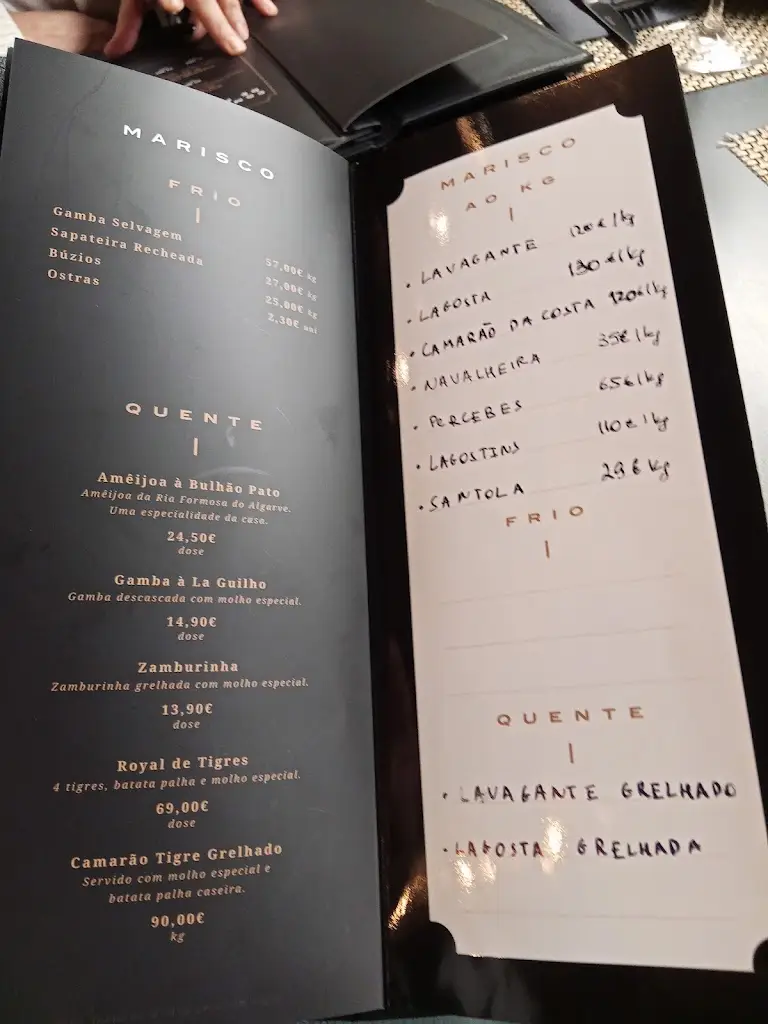 MARISCO
FRIO
Gamba Selvagem 57,00€ kg
Sapateira Recheada 27,00€ kg
Búzios 25,00€ kg
Ostras 2,30€ uni
QUENTE
Amêijoa à Bulhão Pato
Amêijoa da Ria Formosa do Algarve.
Uma especialidade da casa.
24,50€
dose
Gamba à La Guilho
Gamba descascada com molho especial.
14,90€
dose
Zamburinha
Zamburinha grelhada com molho especial.
13,90€
dose
Royal de Tigres
4 tigres, batata palha e molho especial.
69,00€
dose
Camarão Tigre Grelhado
Servido com molho especial e
batata palha caseira.
90,00€
kg
MARISCO
AO KG
• LAVAGANTE 120€/kg
• LAGOSTA 130€/kg
• CAMARÃO DA COSTA 120€/kg
• NAVALHEIRA 35€/kg
• PERCEBES 65€/kg
• LAGOSTINS 110€/kg
• SANTOLA 29€ kg
FRIO
QUENTE
• LAVAGANTE GRELHADO
• LAGOSTA GRELHADA